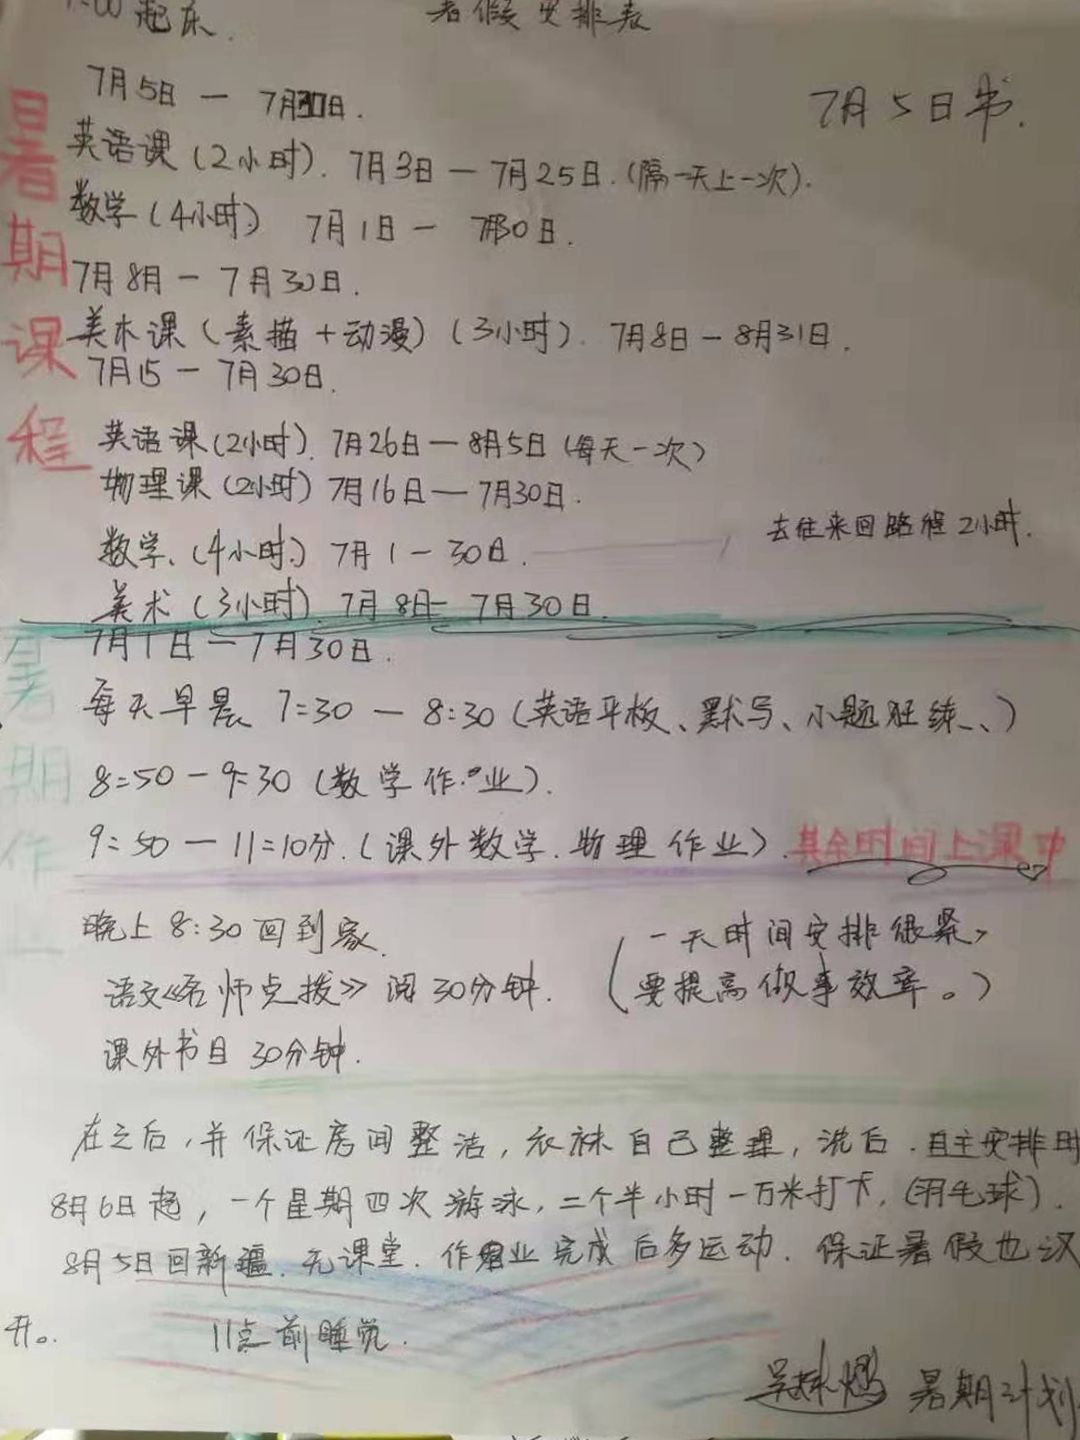 7:00起床.
暑假安排表
7月5日 — 7月30日.
7月5日书.
暑期课程
英语课(2小时). 7月3日 — 7月25日.(隔一天上一次).
数学(4小时) 7月1日 — 7月30日.
7月8月 — 7月30日.
美术课(素描+动漫)(3小时). 7月8日 — 8月31日.
7月15 — 7月30日.
英语课(2小时). 7月26日 — 8月5日(每天一次)
物理课(2小时) 7月16日 — 7月30日.
去往来回路程2小时.
数学.(4小时.) 7月1 — 30日.
美术(3小时). 7月8日 — 7月30日.
暑期作业
7月1日 — 7月30日.
每天早晨 7:30 — 8:30(英语平板、默写、小题狂练、、)
8:50 — 9:30(数学作业).
9:50 — 11:10分.(课外数学.物理作业).其余时间上课中
晚上8:30回到家.
(一天时间安排很紧,
语文《名师点拨》阅30分钟.
(要提高做事效率。)
课外书目30分钟.
在之后,并保证房间整洁,衣袜自己整理,洗后.自主安排时
8月6日起,一个星期四次游泳,二个半小时一万米打卡,(羽毛球).
8月5日回新疆.无课堂.作业完成后多运动.保证暑假也
开。
11点前睡觉.
暑期计划